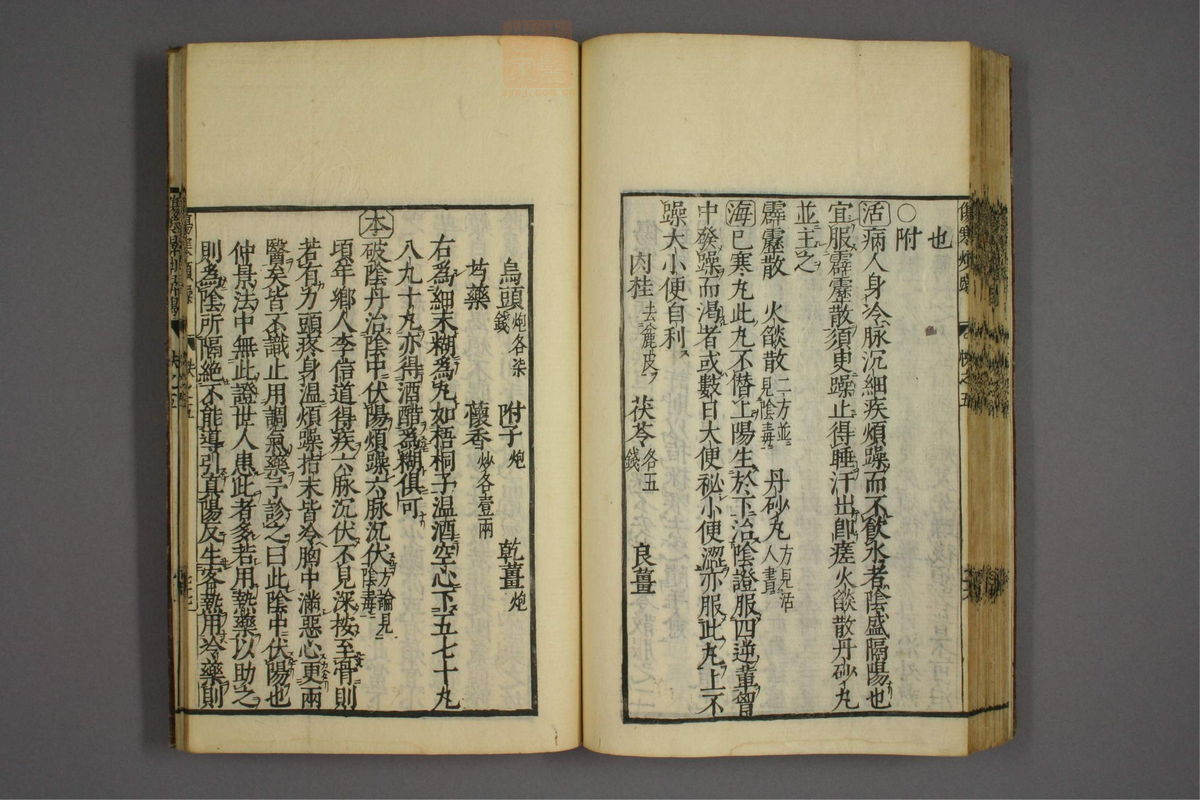 也
○附
活病人身冷脉沉細疾煩躁而不飲水者陰盛隔陽也
宜服霹靂散須臾躁止得睡汗出卽瘥火燄散丹砂丸
並主之
霹靂散 火燄散二方並見陰毒 丹砂丸方見活人書
海已寒丸此丸不僭上陽生於下治陰證服四逆輩胷
中發躁而渴者或數日大便祕小便澀亦服此丸上不
躁大小便自利
肉桂去麄皮 茯苓各五錢 良薑
烏頭炮各柒錢 附子炮 乾薑炮
芍藥 蘹香炒各壹兩
右爲細末糊爲丸如梧桐子温酒空心下五七十丸
八九十丸亦得酒醋爲糊俱可
本破陰丹治陰中伏陽煩躁六脉沉伏方論見陰毒
頃年鄉人李信道得疾六脉沉伏不見深按至骨則
若有力頭疼身温煩躁指末皆冷胸中滿惡心更兩
醫矣皆不識止用調氣藥予診之曰此陰中伏陽也
仲景法中無此證世人患此者多若用熱藥以助之
則爲陰所隔絕不能導引眞陽反生客熱用冷藥則